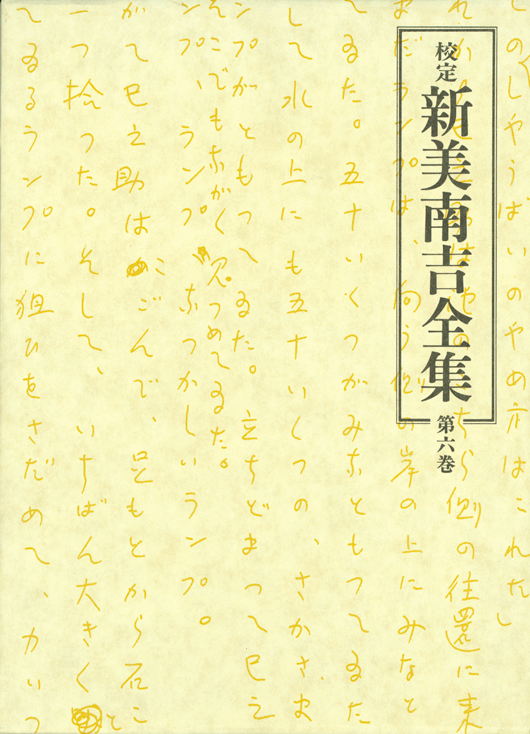 校定
新美南吉全集
第六巻
しやうばいのやめ方はこれだ。し
側の往還に来
まだランプは、向う側の岸の上にみなと
てゐた。五十いくつがみなともつてゐた
して水の上にも五十いくつの、さかさま
ンプがともつてゐた。立ちどまつて巳之
そこでも赤がく見つめてゐた。
ランプ、ランプ、なつかしいランプ。
がて巳之助はかがんで、足もとから石こ
一つ捨つた。そして、いちばん大きくと
てゐるランプに狙ひをさだめて、力いつ